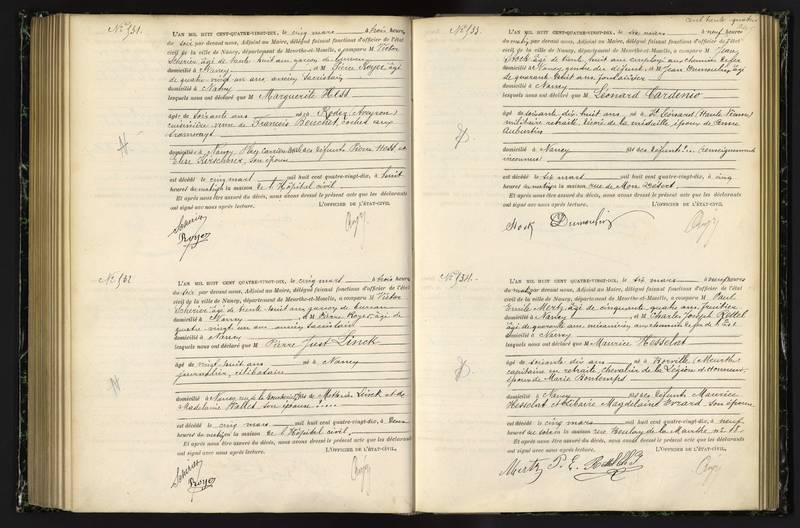 No 131.
L'AN MIL HUIT CENT-QUATRE-VINGT-DIX, le cinq mars à trois heures
du soir par devant nous, Adjoint au Maire, délégué faisant fonctions d'officier de l'état
civil de la ville de Nancy, département de Meurthe-et-Moselle, a comparu M Victor
Scherier âgé de trente huit ans garçon de bureau
domicilié à Nancy, et M Pierre Royer âgé
de quatre-vingt un ans, ancien sacristain
domicilié à Nancy
lesquels nous ont déclaré que M Marguerite Hesst
âgée de soixante ans née à Rodez (Aveyron)
cuisinière veuve de François Bouchet, cocher aux
tramways
domiciliée à Nancy, fille des défunts Pierre Hesst et
son épouse
est décédée le cinq mars mil huit cent quatre-vingt-dix, à huit
heures du matin en la maison de l'Hôpital civil
Et après nous être assuré du décès, nous avons dressé le présent acte que les déclarants
ont signé avec nous après lecture. L'OFFICIER DE L'ÉTAT-CIVIL,
Royer
No 132
L'AN MIL HUIT CENT QUATRE-VINGT-DIX, le cinq mars à trois heures
du soir par devant nous, Adjoint au Maire, délégué faisant fonctions d'officier de l'état
civil de la ville de Nancy, département de Meurthe-et-Moselle, a comparu M Victor
Scherier âgé de trente huit ans garçon de bureau
domicilié à Nancy, et M Pierre Royer, âgé de
quatre vingt un ans ancien sacristain
domicilié à Nancy
lesquels nous ont déclaré que M Pierre Just Linck
âgé de vingt-huit ans né à Nancy
journalier, célibataire
domicilié à Nancy, fils de Mathias Linck et de
Madelaine Wallet son épouse
est décédé le cinq mars mil huit cent quatre-vingt-dix, à
heures du matin en la maison de l'Hôpital civil
Et après nous être assuré du décès, nous avons dressé le présent acte que les déclarants
ont signé avec nous après lecture. L'OFFICIER DE L'ÉTAT-CIVIL,
Royer
Cent trente quatre
No 133.
L'AN MIL HUIT CENT-QUATRE-VINGT-DIX, le six mars à neuf heures
du matin par devant nous, Adjoint au Maire, délégué faisant fonctions d'officier de l'état
civil de la ville de Nancy, département de Meurthe-et-Moselle, a comparu M Jean
Stock âgé de trente huit ans employé aux chemins de fer
domicilié à Nancy, gendre du défunt, et M Jean Dumoulin, âgé
de quarante huit ans
domicilié à Nancy
lesquels nous ont déclaré que M Léonard Cardenio
âgé de soixante dix huit ans né à St Léonard (Haute Vienne)
militaire retraité, décoré de la médaille, époux de
domicilié à Nancy fils des défunts (renseignements
inconnus)
est décédé le six mars mil huit cent quatre-vingt-dix, à cinq
heures du matin en la maison rue de Mon Désert
Et après nous être assuré du décès, nous avons dressé le présent acte que les déclarants
ont signé avec nous après lecture. L'OFFICIER DE L'ÉTAT-CIVIL,
Stock Dumoulin
No 134.
L'AN MIL HUIT CENT QUATRE-VINGT-DIX, le six mars à neuf heures
du matin par devant nous, Adjoint au Maire, délégué faisant fonctions d'officier de l'état
civil de la ville de Nancy, département de Meurthe-et-Moselle, a comparu M Paul
Emile Mertz, âgé de cinquante quatre ans
domicilié à Nancy, et M Charles Joseph
âgé de quarante ans, mécanicien aux chemins de fer de l'Est
domicilié à Nancy
lesquels nous ont déclaré que M Maurice Hesselat
âgé de soixante dix ans né à (Meurthe)
capitaine en retraite, chevalier de la Légion d'honneur
époux de Marie Bontemps
domicilié à Nancy fils des défunts Maurice
Hesselat et Magdelaine Evrard son épouse
est décédé le cinq mars mil huit cent quatre-vingt-dix, à neuf
heures du soir en la maison rue
Et après nous être assuré du décès, nous avons dressé le présent acte que les déclarants
ont signé avec nous après lecture. L'OFFICIER DE L'ÉTAT-CIVIL,
Mertz P. E.